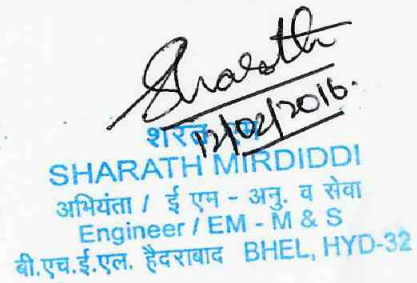 Sharath
12/02/2016.
शरत
SHARATH MIRDIDDI
अभियंता / ई एम - अनु. व सेवा
Engineer / EM - M & S
बी.एच.ई.एल. हैदराबाद BHEL, HYD-32